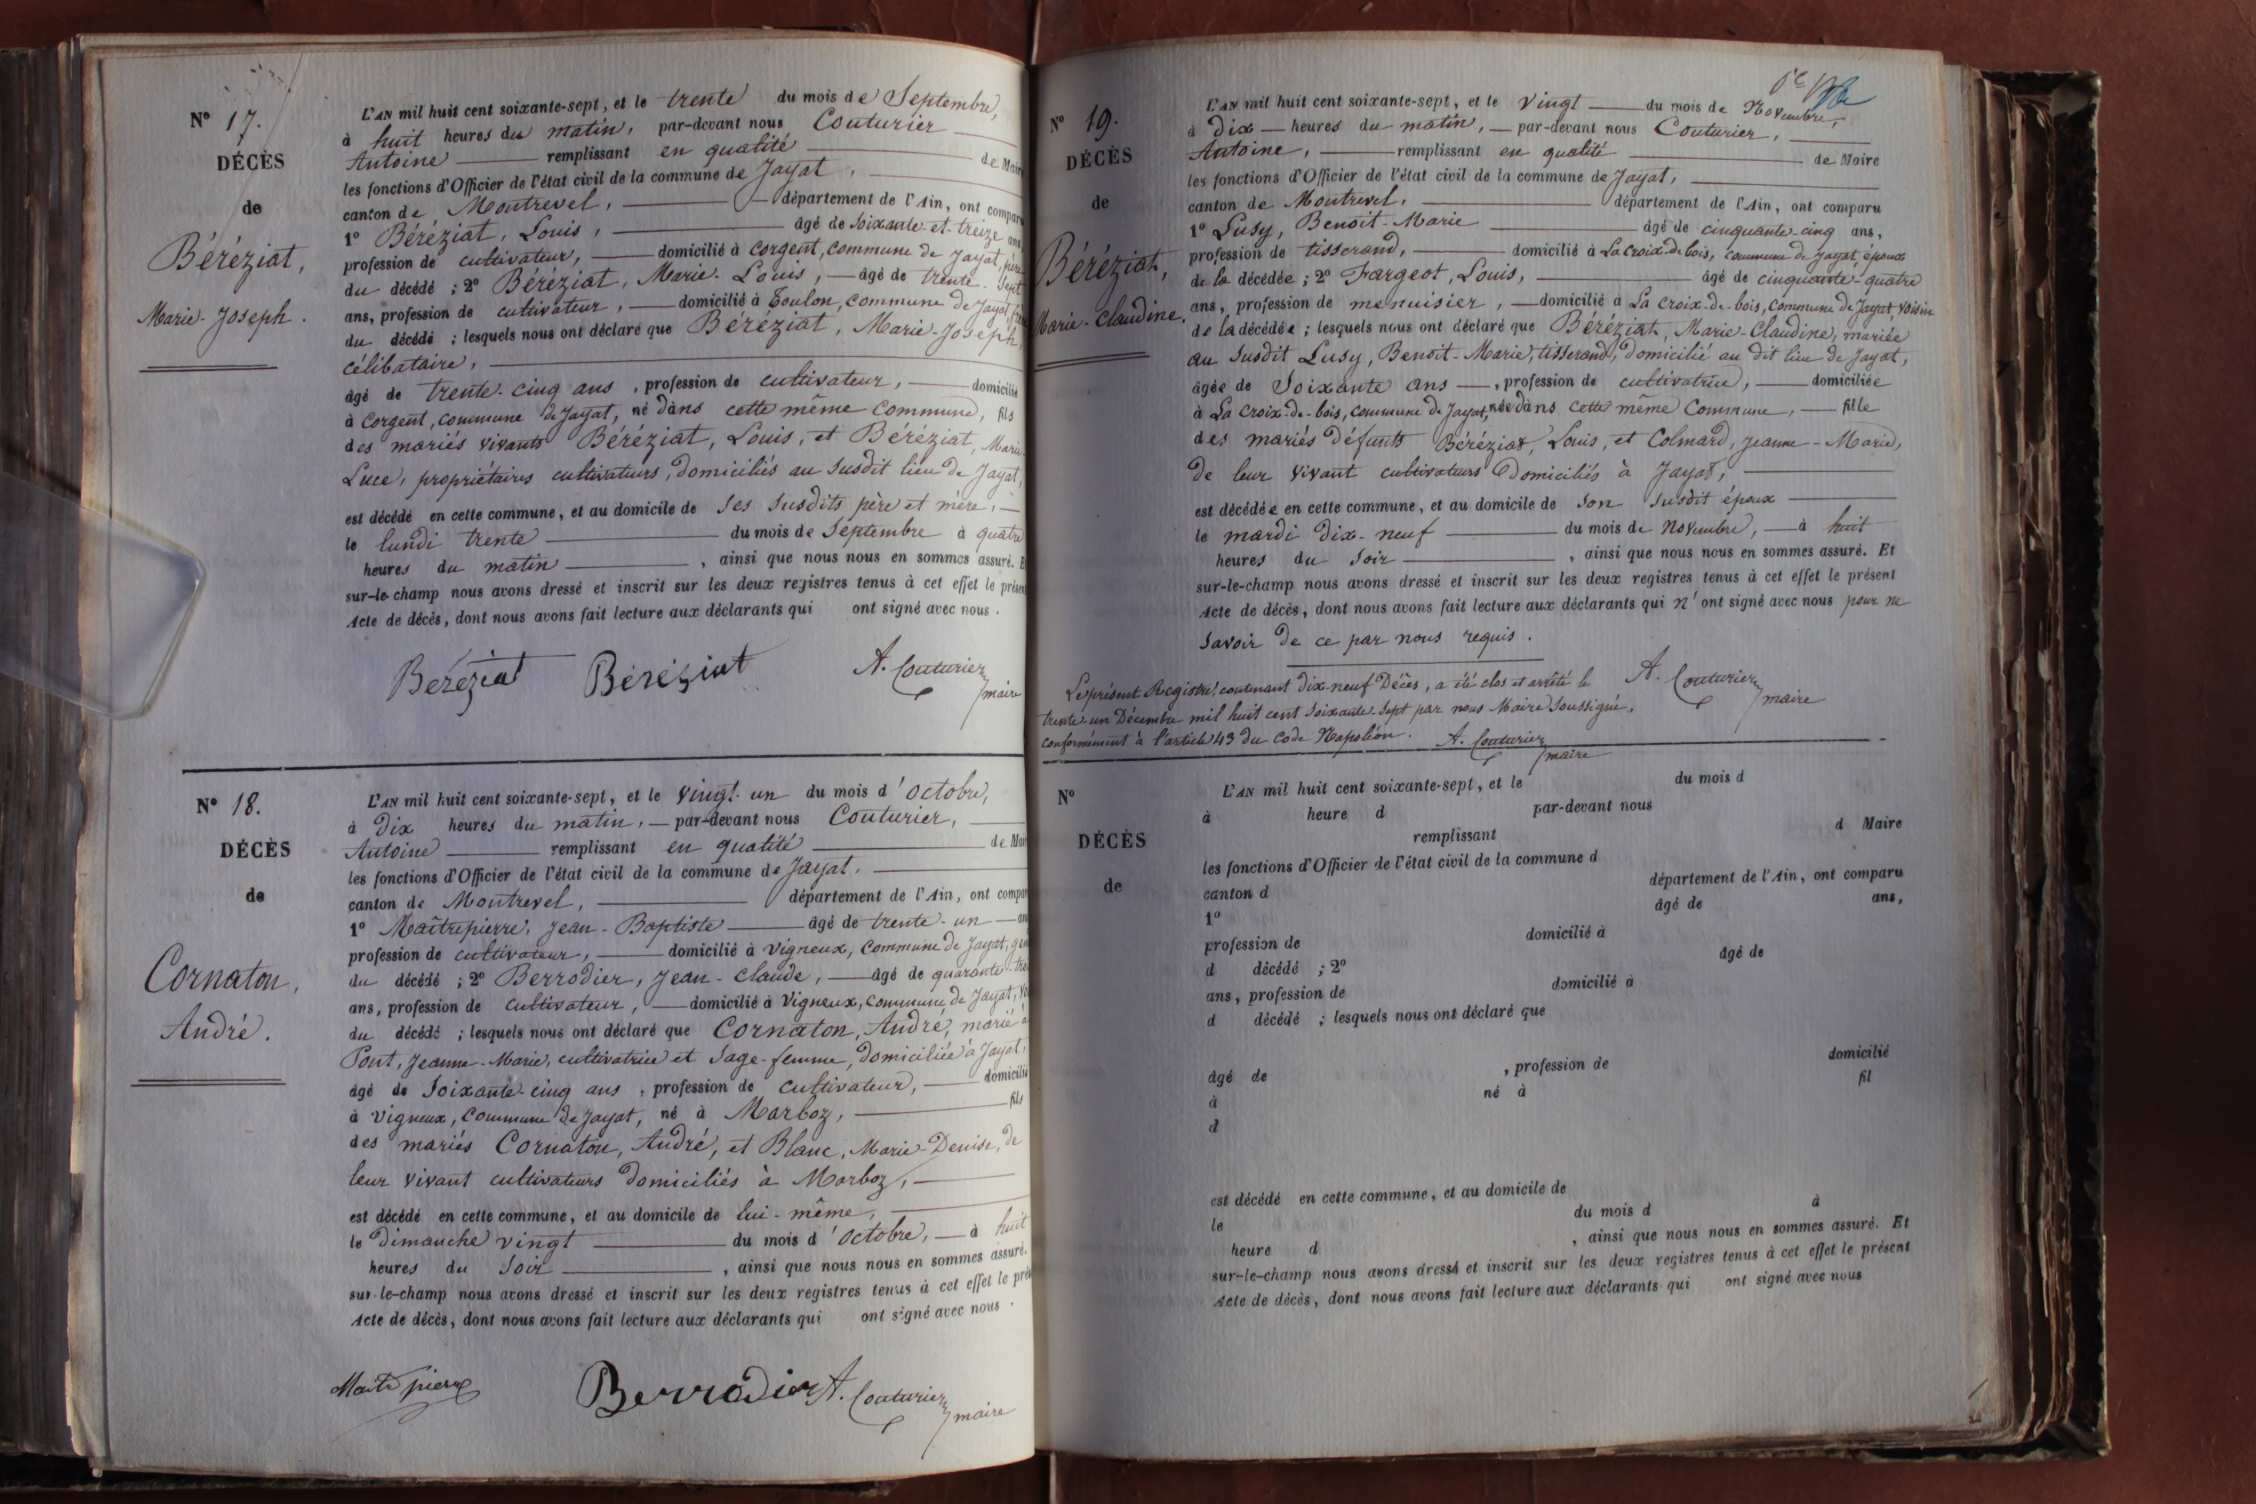 N° 17.
DÉCÈS
de
Béréziat,
Marie-Joseph.
L'AN mil huit cent soixante-sept, et le trente du mois de Septembre,
à huit heures du matin, par-devant nous Couturier
Antoine remplissant en qualité de Maire
les fonctions d'Officier de l'état civil de la commune de Jayat,
canton de Montrevel, département de l'Ain, ont comparu
1° Béréziat, Louis, âgé de soixante-et-treize ans,
profession de cultivateur, domicilié à Corgent, commune de Jayat, père
du décédé ; 2° Béréziat, Marie-Louis, âgé de trente-sept
ans, profession de cultivateur, domicilié à Toulon, commune de Jayat,
du décédé ; lesquels nous ont déclaré que Béréziat, Marie-Joseph,
célibataire,
âgé de trente-cinq ans, profession de cultivateur, domicilié
à Corgent, commune de Jayat, né dans cette même commune, fils
des mariés vivants Béréziat, Louis, et Béréziat, Marie-
Luce, propriétaires cultivateurs, domiciliés au susdit lieu de Jayat,
est décédé en cette commune, et au domicile de ses susdits père et mère,
le lundi trente du mois de Septembre à quatre
heures du matin, ainsi que nous nous en sommes assuré. Et
sur-le-champ nous avons dressé et inscrit sur les deux registres tenus à cet effet le présent
Acte de décès, dont nous avons fait lecture aux déclarants qui ont signé avec nous.
Béréziat Béréziat A. Couturier
maire
N° 18.
DÉCÈS
de
Cornaton,
André.
L'AN mil huit cent soixante-sept, et le vingt-un du mois d'octobre,
à dix heures du matin, par-devant nous Couturier,
Antoine remplissant en qualité de Maire
les fonctions d'Officier de l'état civil de la commune de Jayat,
canton de Montrevel, département de l'Ain, ont comparu
1° Maîtrepierre, Jean-Baptiste âgé de trente-un ans
profession de cultivateur, domicilié à Vigneux, commune de Jayat,
du décédé ; 2° Berrodier, Jean-Claude, âgé de quarante
ans, profession de cultivateur, domicilié à Vigneux, commune de Jayat,
du décédé ; lesquels nous ont déclaré que Cornaton, André, marié à
Pont, Jeanne-Marie, cultivatrice et sage-femme, domiciliée à Jayat,
âgé de soixante-cinq ans, profession de cultivateur, domicilié
à Vigneux, commune de Jayat, né à Marboz, fils
des mariés Cornaton, André, et Blanc, Marie-Denise, de
leur vivant cultivateurs domiciliés à Marboz,
est décédé en cette commune, et au domicile de lui-même,
le dimanche vingt du mois d'octobre, à huit
heures du soir, ainsi que nous nous en sommes assuré.
sur-le-champ nous avons dressé et inscrit sur les deux registres tenus à cet effet le présent
Acte de décès, dont nous avons fait lecture aux déclarants qui ont signé avec nous.
Maîtrepierre Berrodier A. Couturier
maire
N° 19.
DÉCÈS
de
Béréziat,
Marie-Claudine.
L'AN mil huit cent soixante-sept, et le vingt du mois de Novembre,
à dix heures du matin, par-devant nous Couturier,
Antoine, remplissant en qualité de Maire
les fonctions d'Officier de l'état civil de la commune de Jayat,
canton de Montrevel, département de l'Ain, ont comparu
1° Lusy, Benoît-Marie âgé de cinquante-cinq ans,
profession de tisserand, domicilié à La Croix-de-bois, commune de Jayat, époux
de la décédée ; 2° Fargeot, Louis, âgé de cinquante-quatre
ans, profession de menuisier, domicilié à La Croix-de-bois, commune de Jayat, voisin
de la décédée ; lesquels nous ont déclaré que Béréziat, Marie-Claudine, mariée
au susdit Lusy, Benoît-Marie, tisserand, domicilié au dit lieu de Jayat,
âgée de soixante ans, profession de cultivatrice, domiciliée
à La Croix-de-bois, commune de Jayat, née dans cette même commune, fille
des mariés défunts Béréziat, Louis, et Colmard, Jeanne-Marie,
de leur vivant cultivateurs domiciliés à Jayat,
est décédée en cette commune, et au domicile de son susdit époux
le mardi dix-neuf du mois de Novembre, à huit
heures du soir, ainsi que nous nous en sommes assuré. Et
sur-le-champ nous avons dressé et inscrit sur les deux registres tenus à cet effet le présent
Acte de décès, dont nous avons fait lecture aux déclarants qui n'ont signé avec nous pour ne
savoir de ce par nous requis.
A. Couturier
maire
Le présent Registre, contenant dix-neuf Décès, a été clos et arrêté le
trente-un Décembre mil huit cent soixante-sept par nous Maire soussigné,
conformément à l'article 43 du Code Napoléon. A. Couturier
maire
N°
DÉCÈS
de
L'AN mil huit cent soixante-sept, et le du mois d
à heure d par-devant nous
remplissant d Maire
les fonctions d'Officier de l'état civil de la commune d
canton d département de l'Ain, ont comparu
1° âgé de ans,
profession de domicilié à
d décédé ; 2° âgé de
ans, profession de domicilié à
d décédé ; lesquels nous ont déclaré que
âgé de , profession de domicilié
à né à fil
d
est décédé en cette commune, et au domicile de
le du mois d à
heure d , ainsi que nous nous en sommes assuré. Et
sur-le-champ nous avons dressé et inscrit sur les deux registres tenus à cet effet le présent
Acte de décès, dont nous avons fait lecture aux déclarants qui ont signé avec nous